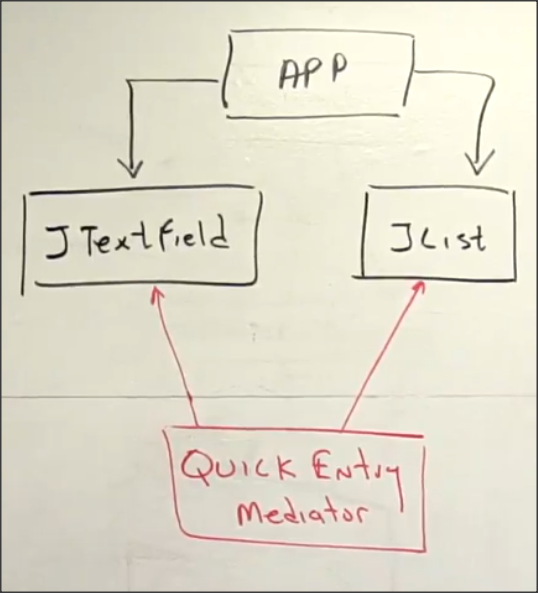 APP
JTextField
JList
QUICK Entry
Mediator